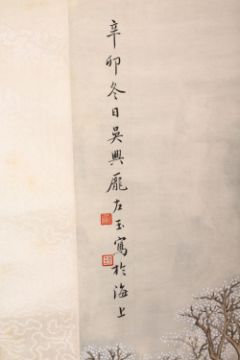 辛卯冬日吳興龐左玉寫於海上